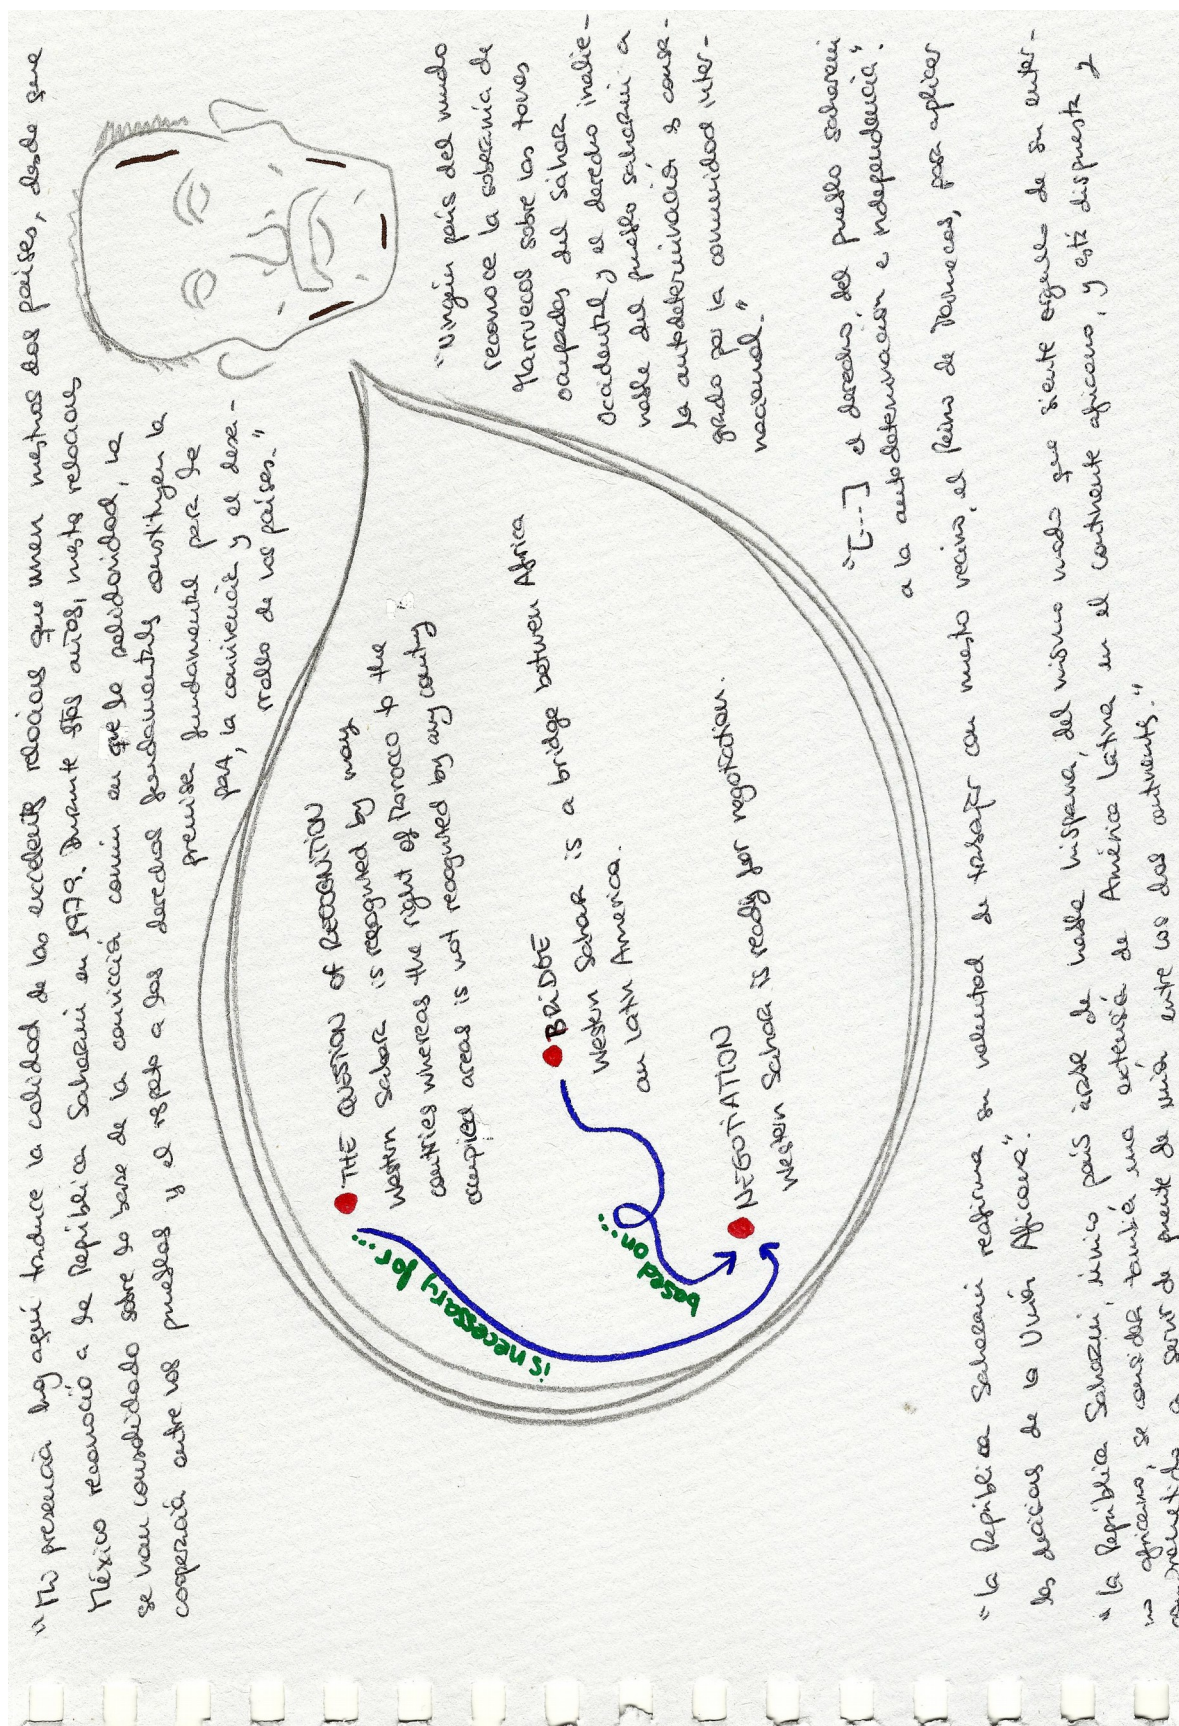 "Mi presencia hoy aquí traduce la calidad de las excelentes relaciones que unen nuestros dos países, desde que
México reconoció a la República Saharaui en 1979. Durante estos años, nuestras relaciones
se han consolidado sobre la base de la convicción común en que la solidaridad, la
cooperación entre los pueblos y el respeto a los derechos fundamentales constituyen la
premisa fundamental para la
paz, la convivencia y el desa-
rrollo de los países."
"Ningún país del mundo
reconoce la soberanía de
Marruecos sobre las zonas
ocupadas del Sáhara
Occidental y el derecho inalie-
nable del pueblo saharaui a
la autodeterminación es consa-
grado por la comunidad inter-
nacional."
THE QUESTION of RECOGNITION
Western Sahara is recognized by many
countries whereas the right of Morocco to the
occupied areas is not recognized by any country
is necessary for...
BRIDGE
Western Sahara is a bridge between Africa
an Latin America.
based on...
NEGOTIATION
Western Sahara is ready for negotiation.
"[...] el derecho, del pueblo saharaui
a la autodeterminación e independencia".
"la República Saharaui reafirma su voluntad de trabajar con nuestro vecino, el Reino de Marruecos, para aplicar
las decisiones de la Unión Africana".
"la República Saharaui, único país árabe de habla hispana, del mismo modo que siente orgullo de su enter-
no africano, se considera también una extensión de América Latina en el continente africano, y está dispuesta y
comprometida a servir de puente de unión entre los dos continentes."